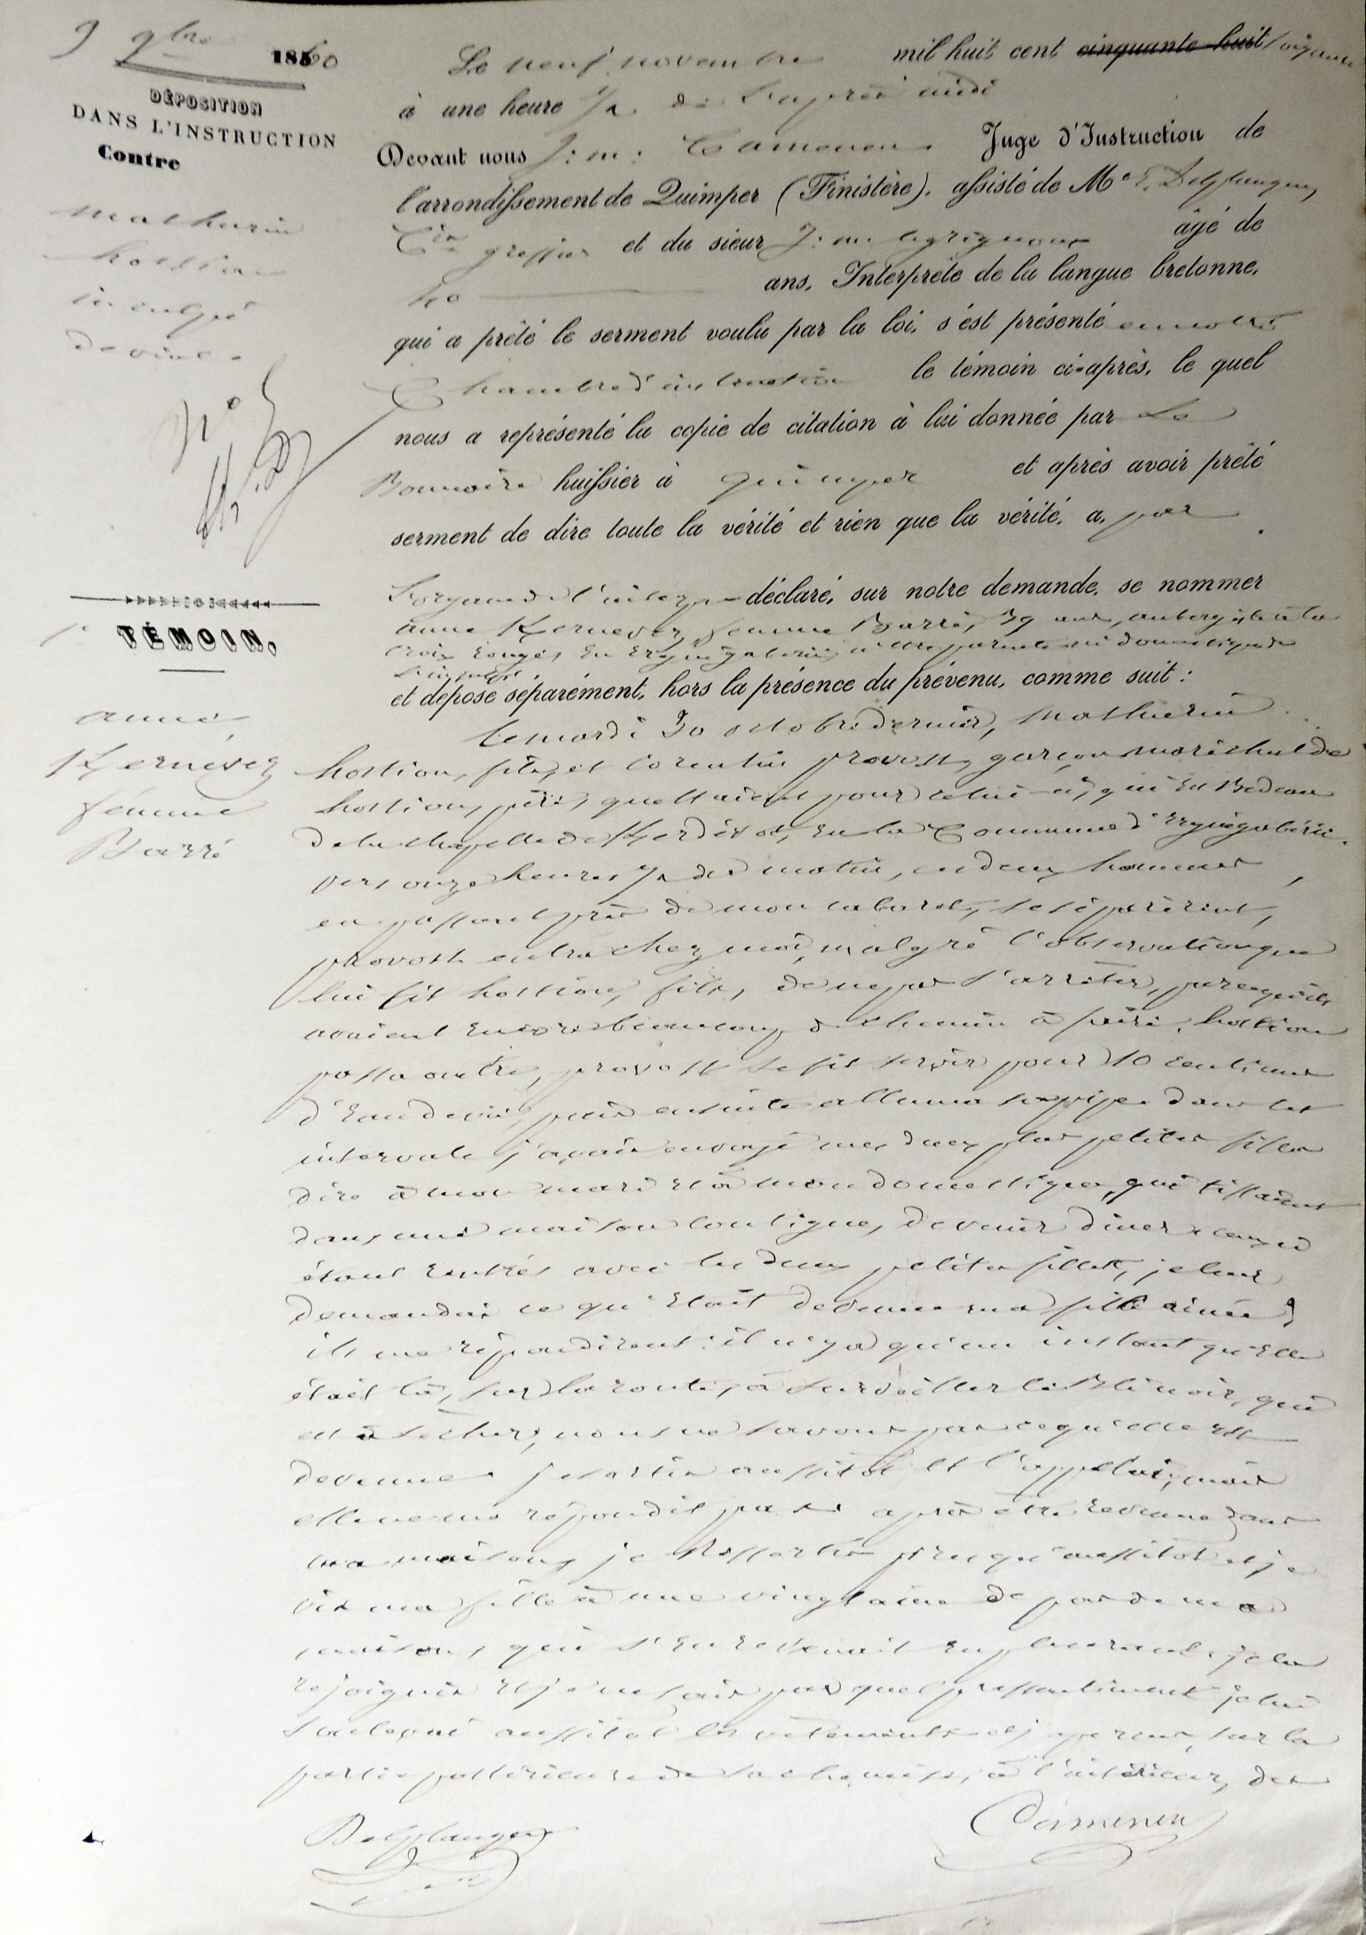 9 9bre 1860
DÉPOSITION
DANS L'INSTRUCTION
Contre
Mathurin
hostiou
inculpé
de viol
TÉMOIN,
anne
Kernévez
femme
Barré
Le neuf novembre mil huit cent cinquante-huit soixante
à une heure 1/2 de l'après midi
Devant nous J: m: Cormenen Juge d'Instruction de
l'arrondissement de Quimper (Finistère), assisté de Me E. Delflanques,
Cis greffier et du sieur J: m. Legrignoux âgé de
ans, Interprète de la langue bretonne,
qui a prêté le serment voulu par la loi, s'est présenté en notre
Chambre d'instruction le témoin ci-après, le quel
nous a représenté la copie de citation à lui donnée par Le
Bonnoire huissier à quimper et après avoir prêté
serment de dire toute la vérité et rien que la vérité, a, par
l'organe de l'interp. déclaré, sur notre demande, se nommer
anne Kernevez, femme Barré, 39 ans, aubergiste à la
Croix rouge, en Ergué-gabéric, n'être parente ni domestique de
l'inculpé
et déposé séparément, hors la présence du prévenu, comme suit :
Le mardi 30 octobre dernier, Mathurin
hostiou, fils, et Corentin provost, garçon maréchal de
hostiou, père, quettaient pour celui-ci, qui est Bedeau
de la chapelle de Kerdévot, en la Commune d'Ergué gabéric.
vers onze heures 1/2 du matin, ces deux hommes,
en passant près de mon cabaret, se séparèrent,
provost entra chez moi, malgré l'observation que
lui fit hostiou, fils, de ne pas s'arrêter, parcequ'ils
avaient encore beaucoup de chemin à faire. hostiou
passa outre, provost se fit servir pour 10 centimes
d'Eau de vie, puis ensuite alluma sa pipe. dans cet
intervale j'avais envoyé mes deux plus petites filles
dire à mon mari et à mon domestique, qui tissaient
dans une maison contigue, de venir diner. ceux ci
étant rentrés avec les deux petites filles, je leur
demandai ce qu'était devenue ma fille ainée ?
ils me répondirent : il n'y a qu'un instant qu'elle
était là, sur la route, à surveiller le Blé noir, qui
est à sécher, nous ne savons pas ce qu'elle est
devenue. je sortis aussitôt et l'appelai, mais
elle ne me répondit pas. après être revenue dans
ma maison, je ressortis presqu'aussitôt et je
vis ma fille à une vingtaine de pas de ma
maison, qui s'en revenait en pleurant. je la
rejoignis et je ne sais par quel pressentiment je lui
soulevai aussitôt les vêtements et j'aperçus, sur la
partie postérieure de sa chemise, à l'intérieur, des
Delflanques
Cormenen